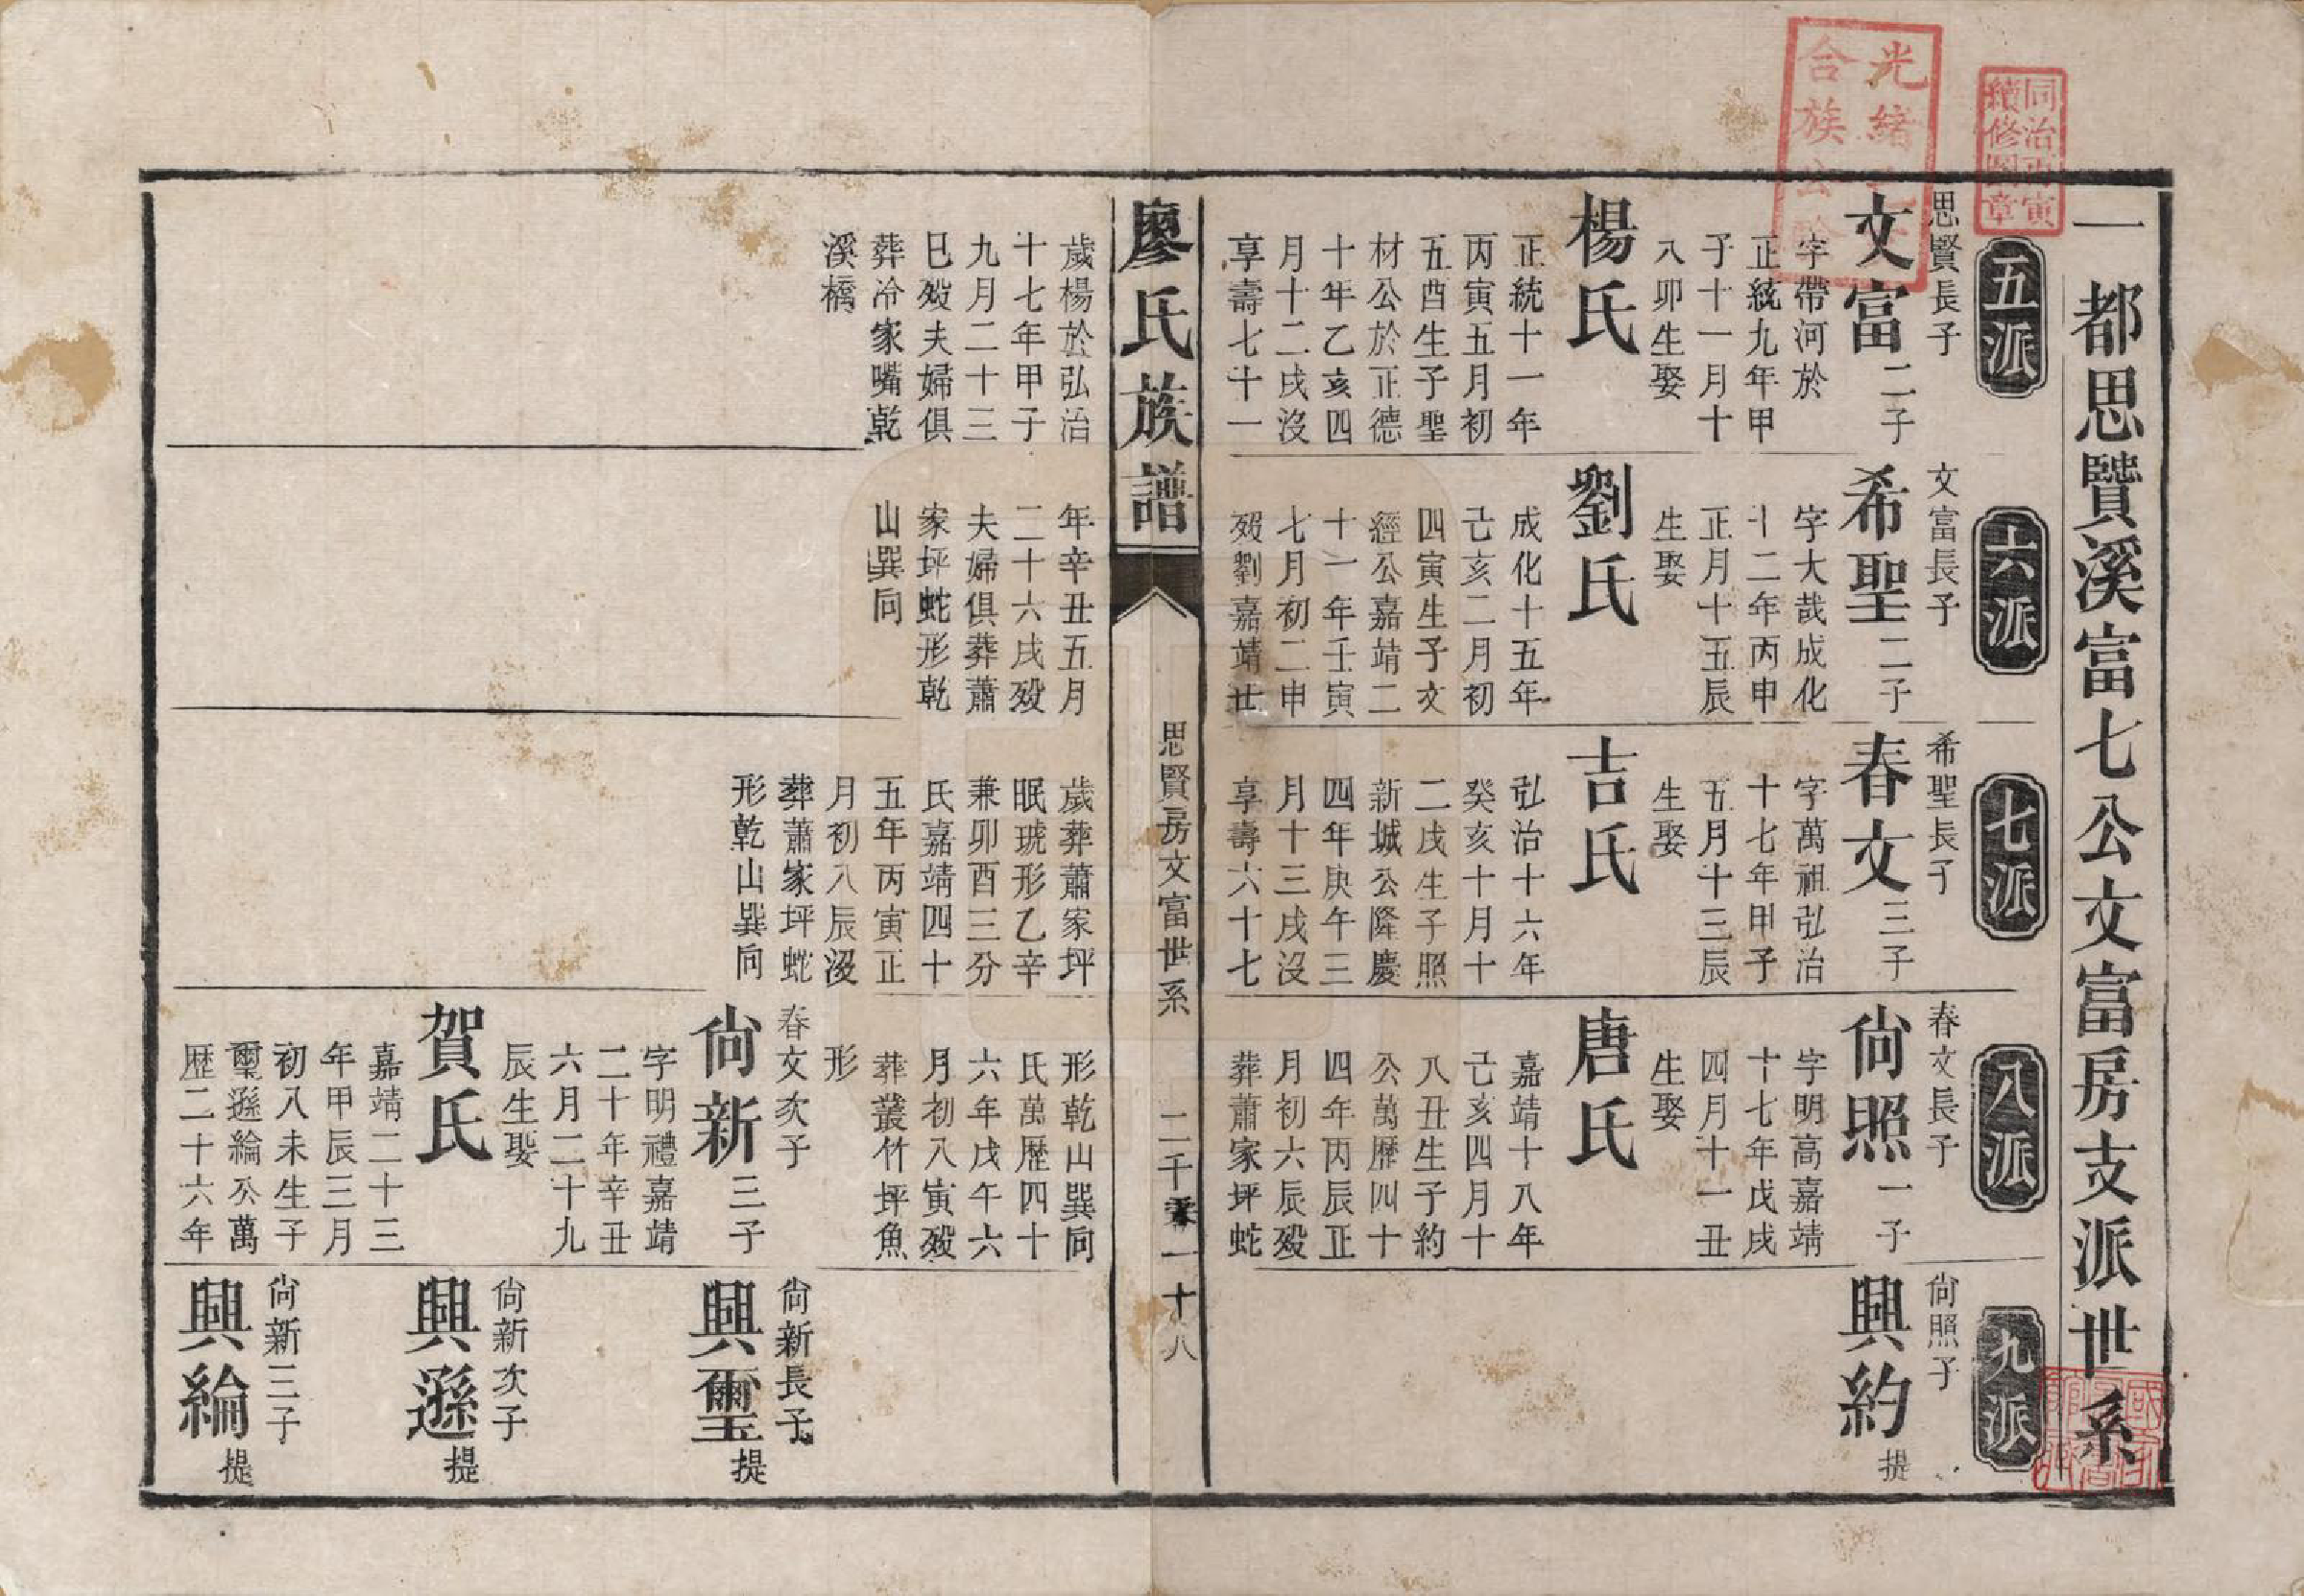 一都思賢溪富七公文富房支派世系
五派
思賢長子
文富二子
字帶河於
正統九年甲
子十一月十
八卯生娶
楊氏
正統十一年
丙寅五月初
五酉生子聖
材公於正德
十年乙亥四
月十二戌沒
享壽七十一
歲楊於弘治
十七年甲子
九月二十三
巳歿夫婦俱
葬冷家嘴乾
溪橋
六派
文富長子
希聖二子
字大哉成化
十二年丙申
正月十五辰
生娶
劉氏
成化十五年
己亥二月初
四寅生子文
經公嘉靖二
十一年壬寅
七月初二申
歿劉嘉靖廿
年辛丑五月
二十六戌歿
夫婦俱葬蕭
家坪蛇形乾
山巽向
七派
希聖長子
春文三子
字萬祖弘治
十七年甲子
五月十三辰
生娶
吉氏
弘治十六年
癸亥十月十
二戌生子照
新城公隆慶
四年庚午三
月十三戌沒
享壽六十七
歲葬蕭家坪
眠琥形乙辛
兼卯酉三分
氏嘉靖四十
五年丙寅正
月初八辰沒
葬蕭家坪蛇
形乾山巽向
八派
春文長子
尙照一子
字明高嘉靖
十七年戊戌
四月十一丑
生娶
唐氏
嘉靖十八年
己亥四月十
八丑生子約
公萬歷四十
四年丙辰正
月初六辰歿
葬蕭家坪蛇
形乾山巽向
氏萬歷四十
六年戊午六
月初八寅歿
葬叢竹坪魚
形
春文次子
尙新三子
字明禮嘉靖
二十年辛丑
六月二十九
辰生娶
賀氏
嘉靖二十三
年甲辰三月
初八未生子
璽遜綸公萬
歷二十六年
九派
尙照子
興約提
尙新長子
興璽提
尙新次子
興遜提
尙新三子
興綸提
廖氏族譜
思賢房文富世系
二千
一十八
光緒
合族公
同治丙寅
續修圖章